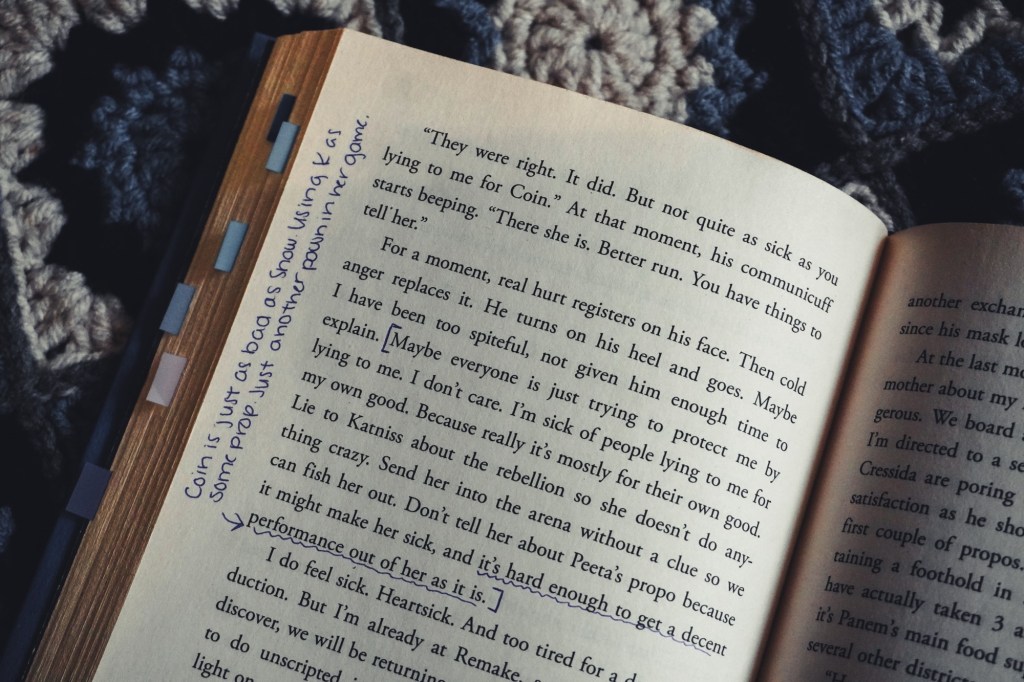 Coin is just as bad as Snow. Using K as
some prop. Just another pawn in her game.
“They were right. It did. But not quite as sick as you
lying to me for Coin.” At that moment, his communicuff
starts beeping. “There she is. Better run. You have things to
tell her.”
For a moment, real hurt registers on his face. Then cold
anger replaces it. He turns on his heel and goes. Maybe
I have been too spiteful, not given him enough time to
explain. [Maybe everyone is just trying to protect me by
lying to me. I don’t care. I’m sick of people lying to me for
my own good. Because really it’s mostly for their own good.
Lie to Katniss about the rebellion so she doesn’t do any-
thing crazy. Send her into the arena without a clue so we
can fish her out. Don’t tell her about Peeta’s propo because
it might make her sick, and it’s hard enough to get a decent
performance out of her as it is.]
I do feel sick. Heartsick. And too tired for a
duction. But I’m already at Remake,
discover, we will be returning
to do unscripted
light on
another
since his mask
At the last
mother about my
gerous. We board
I’m directed to a
Cressida are poring
satisfaction as he
first couple of propos.
taining a foothold in
have actually taken 3
it’s Panem’s main food
several other